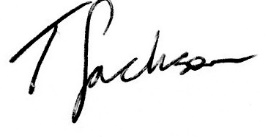 T Jackson